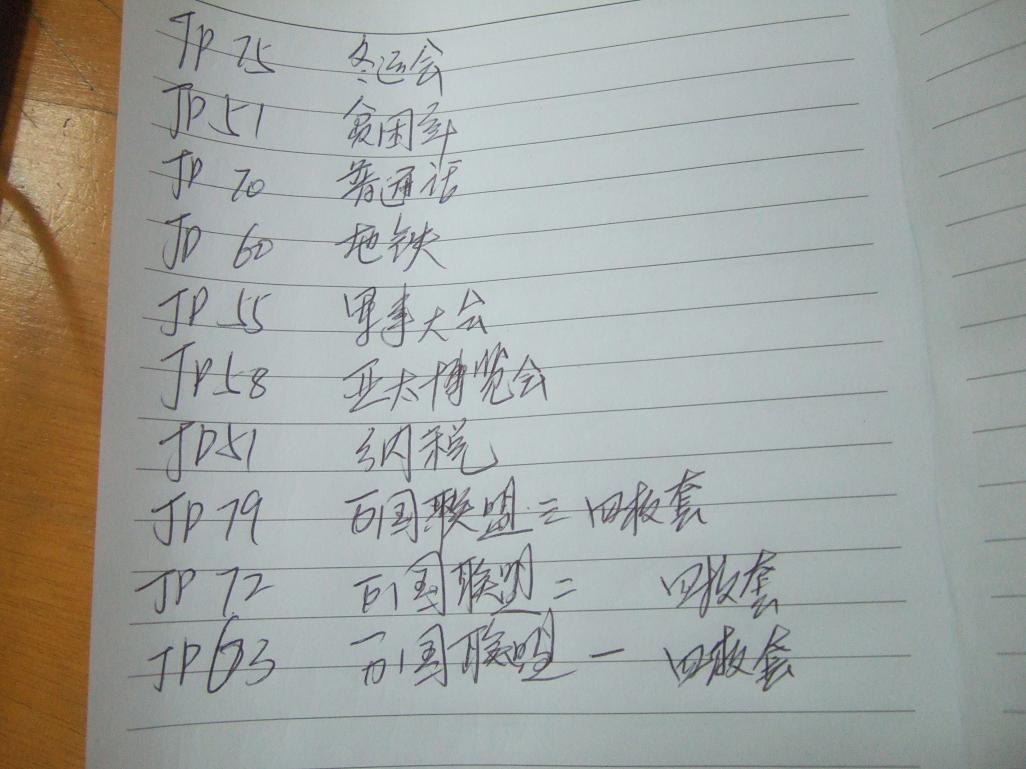 JP 75 冬运会
JP 51 贫困年
JP 70 普通话
JP 60 地铁
JP 55 军事大会
JP 58 亚太博览会
JP 51 纳税
JP 79 万国联盟三 四枚套
JP 72 万国联盟二 四枚套
JP 63 万国联盟一 四枚套